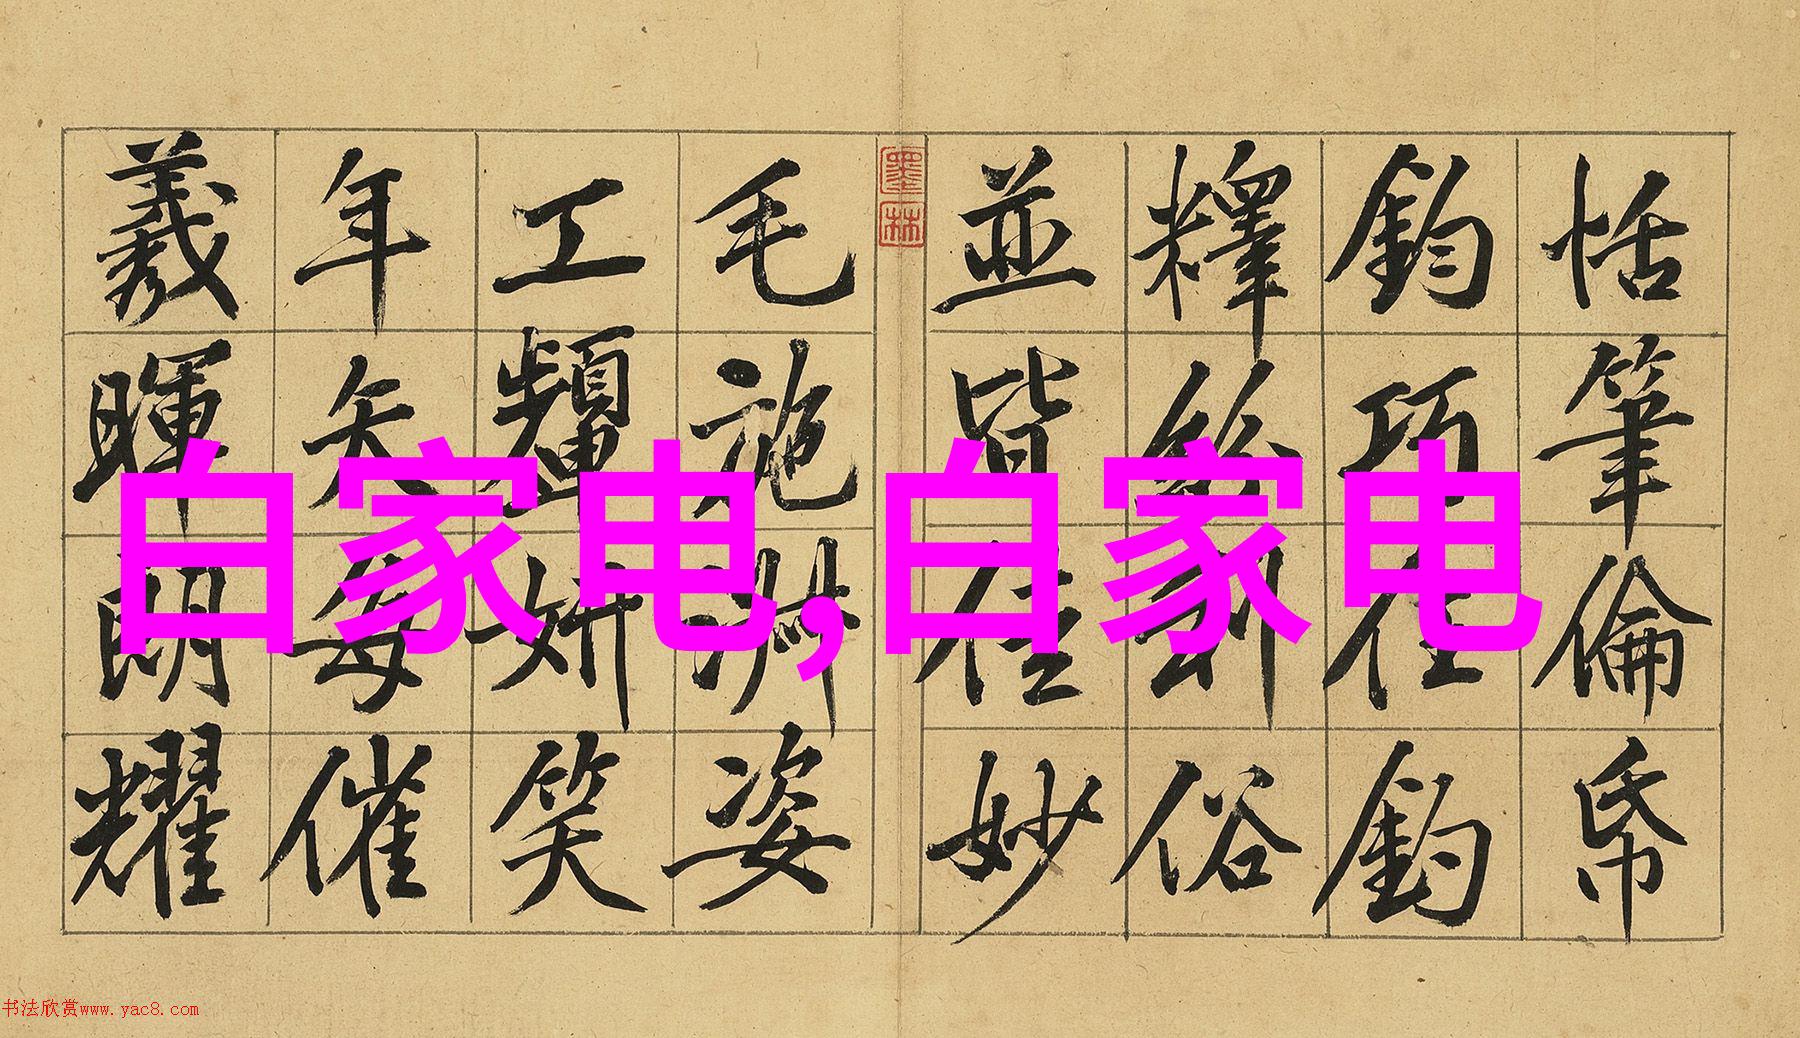 恬筆倫帋
鈞巧任釣
釋紛利俗
並皆佳妙
墨林
毛施淑姿
工顰妍笑
年矢每催
羲暉朗耀
白家电,白家电
书法欣赏www.yac8.com